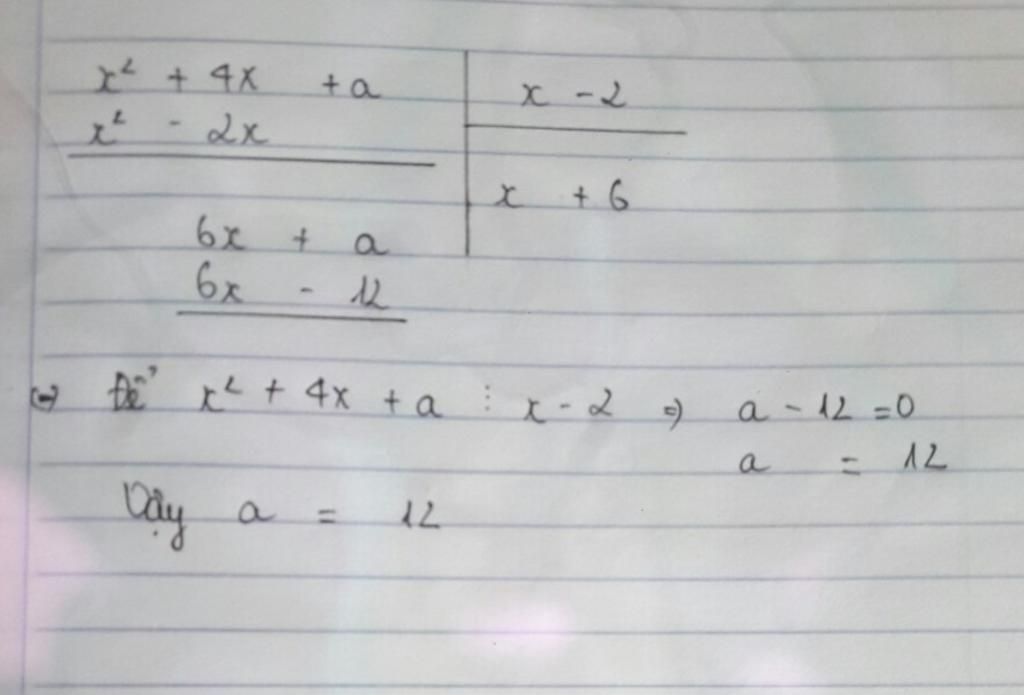 x² + 4x + a | x - 2
x² - 2x
x + 6
6x + a
6x - 12
⇔ Để x² + 4x + a ⋮ x - 2 ⇒ a - 12 = 0
a = 12
Vậy a = 12